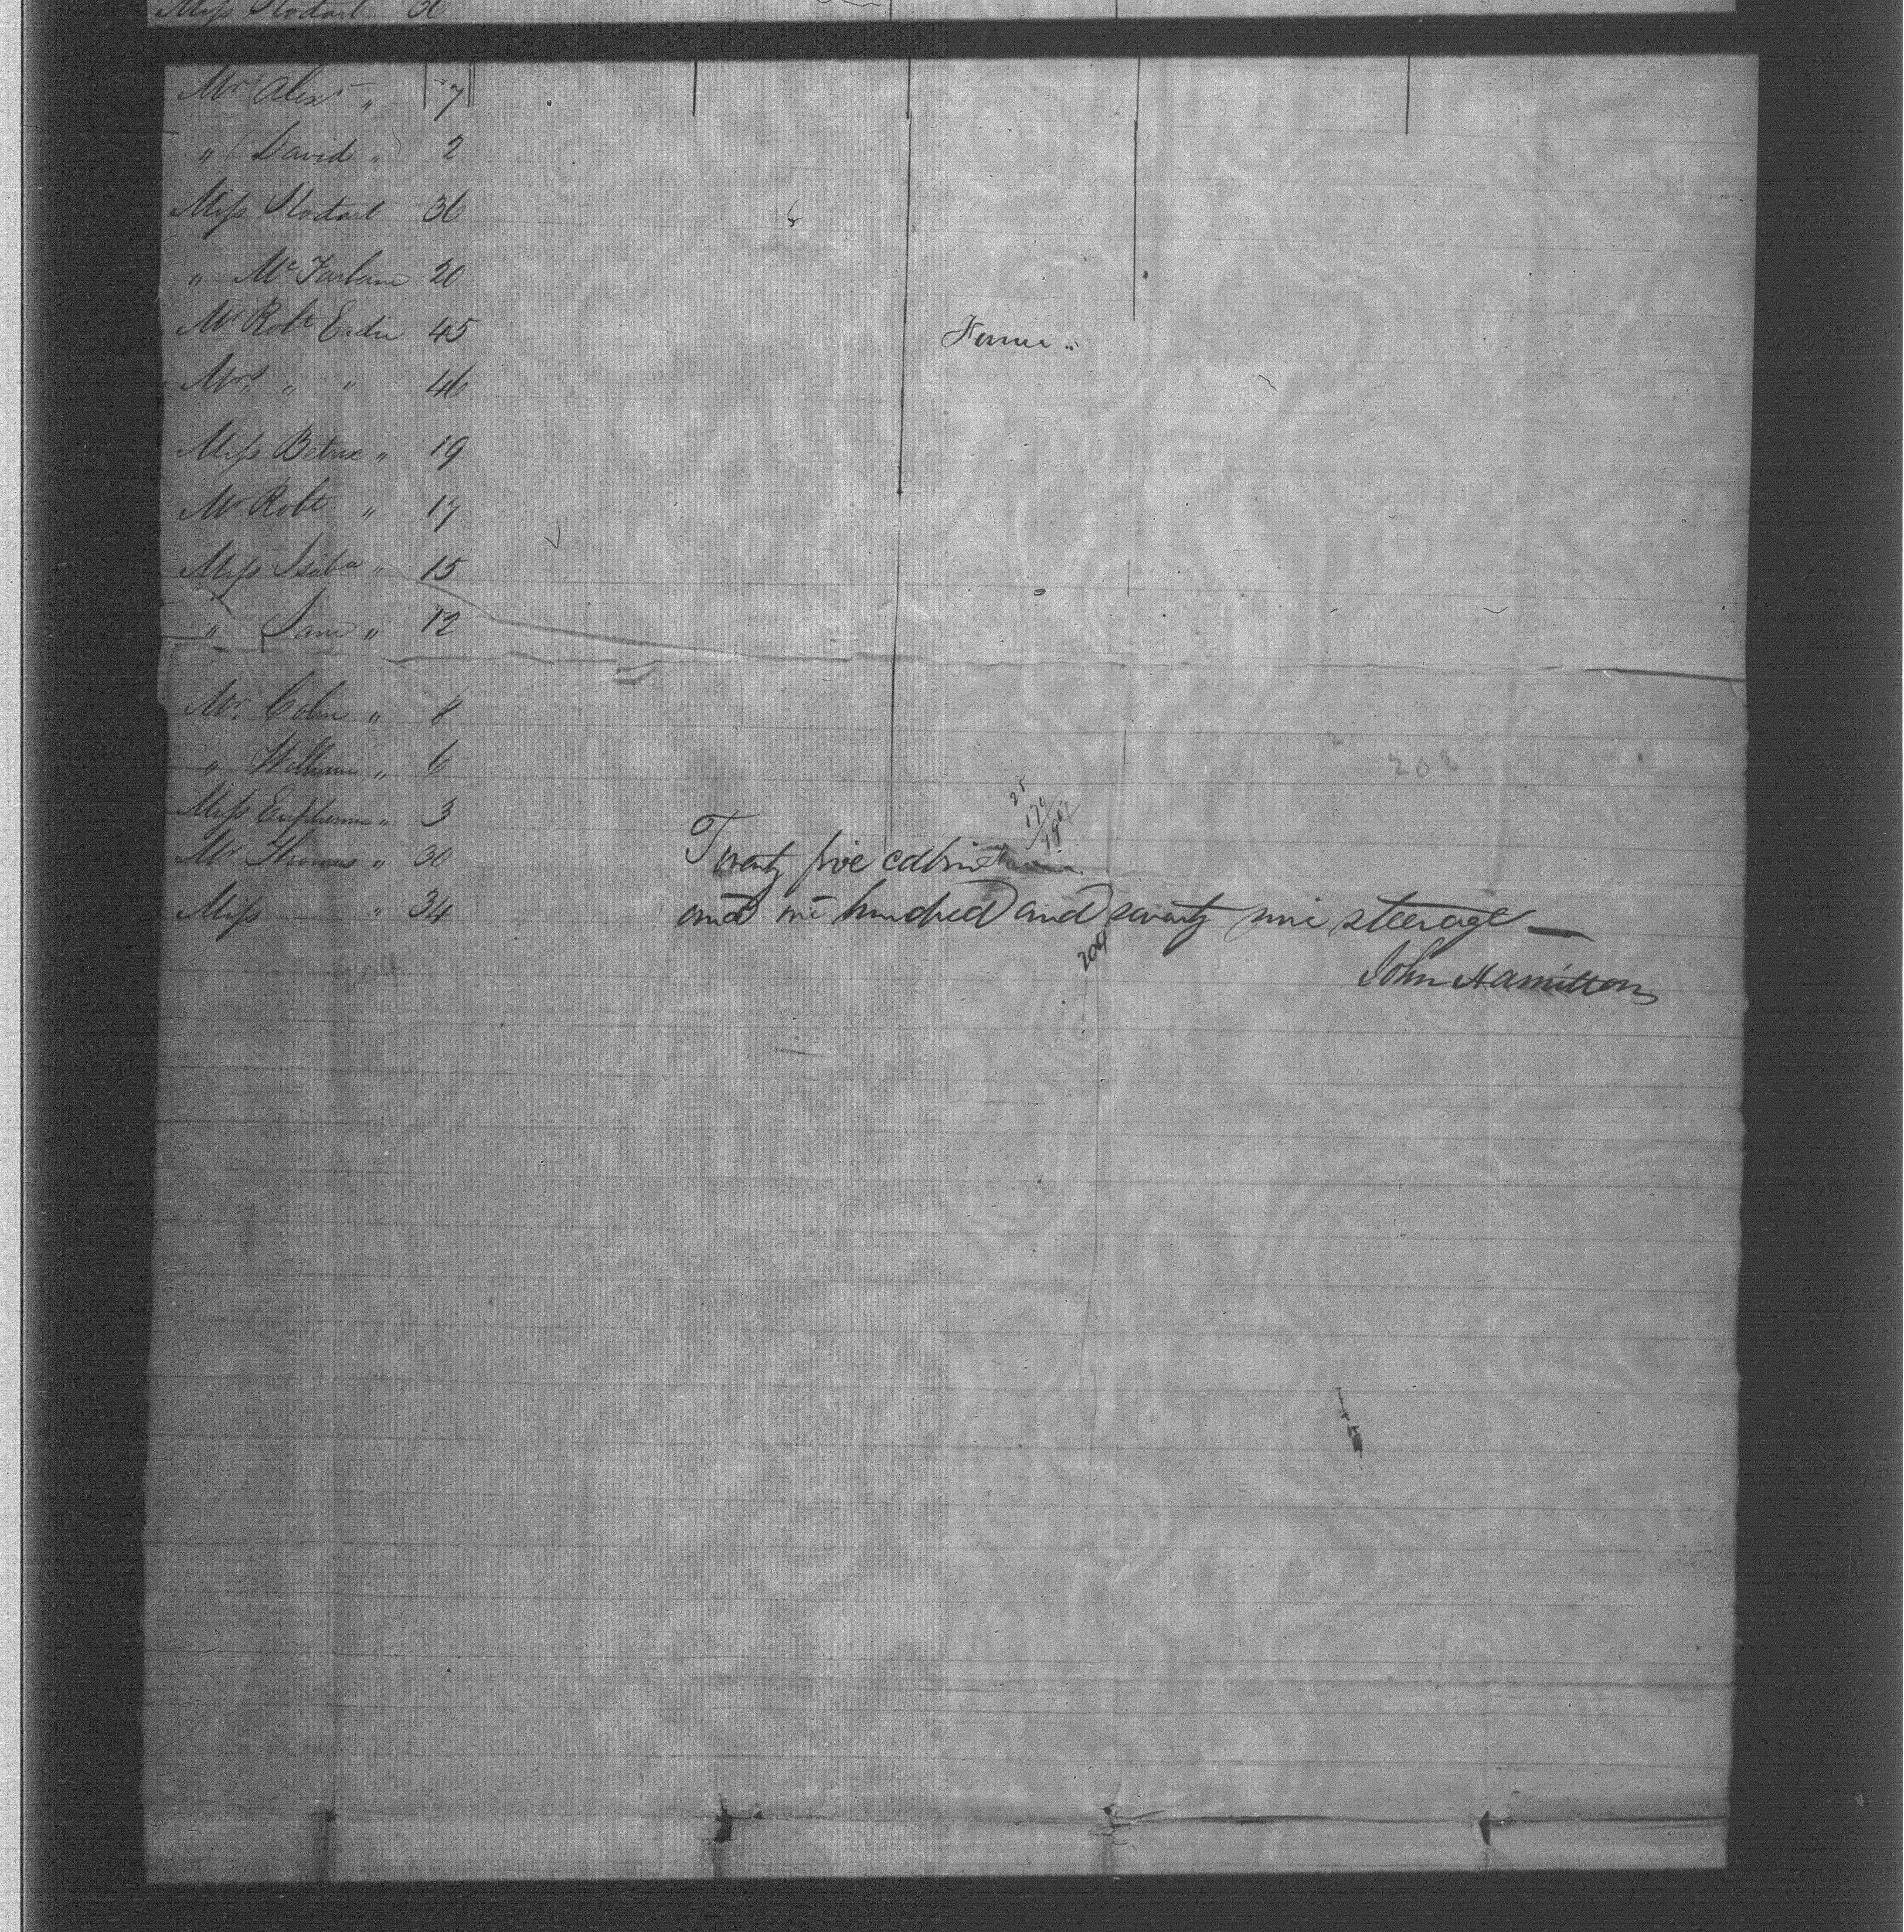 Miss Stodart 36
Mr Alexr " 7
" David " 2
Miss Stodart 36
" Mc Farlane 20
Mr Robt Eadie 45
Mrs " " 46
Miss Betrix " 19
Mr Robt " 17
Miss Isaba " 15
" Jane " 12
Mr. Colin " 8
" William " 6
Miss Euphemia " 3
Mr Thomas " 30
Miss — " 34
204
208
25
179
Twenty five cabin
and one hundred and seventy nine steerage —
204
John Hamilton